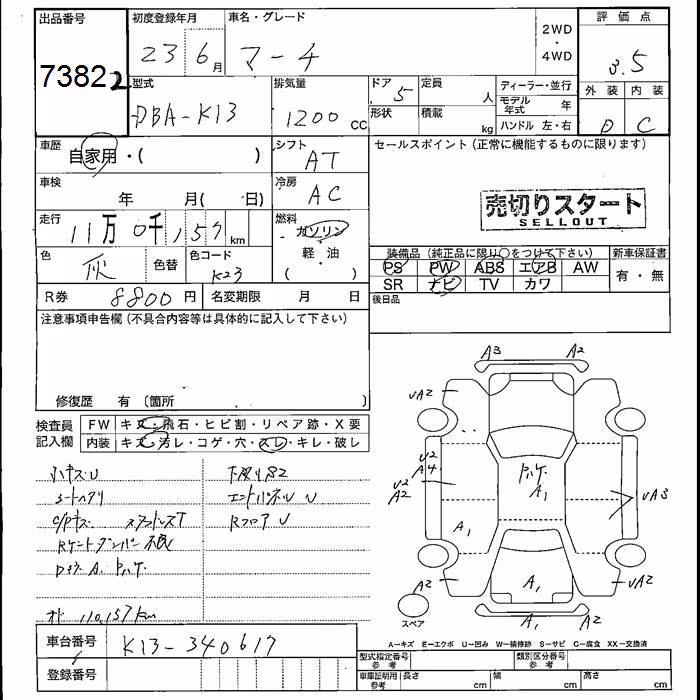 出品番号
7382 2
初度登録年月
23 6月
車名・グレード
マーチ
2WD
・
4WD
評価点
3.5
外装 内装
D C
型式
DBA-K13
排気量
1200 cc
ドア 5
形状
定員 人
積載 kg
ディーラー・並行
モデル年式 年
ハンドル 左・右
車歴
自家用・( )
シフト
AT
車検
年 月( 日)
冷房
AC
走行
11万0千157km
燃料
ガソリン
・
軽・油
( )
色
灰
色替
色コード
K23
R券 8800円
名変期限 月 日
セールスポイント(正常に機能するものに限ります)
売切りスタート
SELLOUT
装備品(純正品に限り○をつけて下さい)
PS PW ABS エアB AW
SR ナビ TV カワ
新車保証書
有・無
後日品
注意事項申告欄(不具合内容等は具体的に記入して下さい)
修復歴 有 〔箇所 〕
検査員
記入欄
FW キズ・飛石・ヒビ割・リペア跡・X要
内装 キズ・汚レ・コゲ・穴・スレ・キレ・破レ
ハナキズU
シートヘタリ
エンドパネル U
Rフロア U
110,157km
A3 A2
UA2
U2
A4
U2
A2
A1
A1
UA3
A2
A1
UA2
A1 A2
スペア
A=キズ E=エクボ U=凹み W=補修跡 S=サビ C=腐食 XX=交換済
車台番号
K13-340617
登録番号
型式指定番号
参考
類別区分番号
参考
車庫証明用
参考
長さ cm
幅 cm
高さ cm